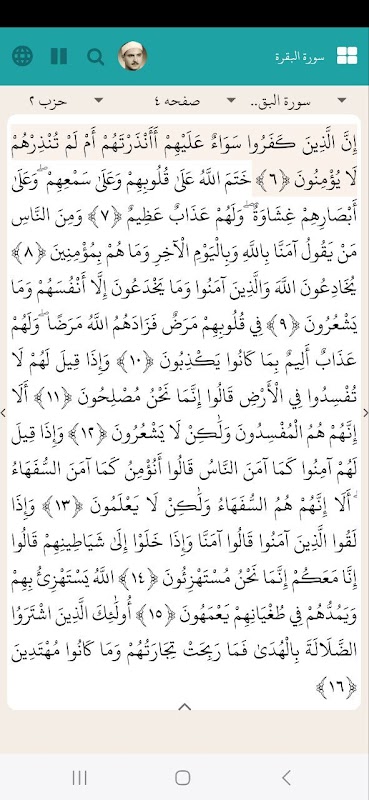 سورة البقرة
سورة البق..
صفحه ٤
حزب ٢
إِنَّ الَّذِينَ كَفَرُوا سَوَاءٌ عَلَيْهِمْ أَأَنْذَرْتَهُمْ أَمْ لَمْ تُنْذِرْهُمْ
لَا يُؤْمِنُونَ ﴿٦﴾ خَتَمَ اللَّهُ عَلَىٰ قُلُوبِهِمْ وَعَلَىٰ سَمْعِهِمْ ۖ وَعَلَىٰ
أَبْصَارِهِمْ غِشَاوَةٌ ۖ وَلَهُمْ عَذَابٌ عَظِيمٌ ﴿٧﴾ وَمِنَ النَّاسِ
مَنْ يَقُولُ آمَنَّا بِاللَّهِ وَبِالْيَوْمِ الْآخِرِ وَمَا هُمْ بِمُؤْمِنِينَ ﴿٨﴾
يُخَادِعُونَ اللَّهَ وَالَّذِينَ آمَنُوا وَمَا يَخْدَعُونَ إِلَّا أَنْفُسَهُمْ وَمَا
يَشْعُرُونَ ﴿٩﴾ فِي قُلُوبِهِمْ مَرَضٌ فَزَادَهُمُ اللَّهُ مَرَضًا ۖ وَلَهُمْ
عَذَابٌ أَلِيمٌ بِمَا كَانُوا يَكْذِبُونَ ﴿١٠﴾ وَإِذَا قِيلَ لَهُمْ لَا
تُفْسِدُوا فِي الْأَرْضِ قَالُوا إِنَّمَا نَحْنُ مُصْلِحُونَ ﴿١١﴾ أَلَا
إِنَّهُمْ هُمُ الْمُفْسِدُونَ وَلَٰكِنْ لَا يَشْعُرُونَ ﴿١٢﴾ وَإِذَا قِيلَ
لَهُمْ آمِنُوا كَمَا آمَنَ النَّاسُ قَالُوا أَنُؤْمِنُ كَمَا آمَنَ السُّفَهَاءُ
ۗ أَلَا إِنَّهُمْ هُمُ السُّفَهَاءُ وَلَٰكِنْ لَا يَعْلَمُونَ ﴿١٣﴾ وَإِذَا
لَقُوا الَّذِينَ آمَنُوا قَالُوا آمَنَّا وَإِذَا خَلَوْا إِلَىٰ شَيَاطِينِهِمْ قَالُوا
إِنَّا مَعَكُمْ إِنَّمَا نَحْنُ مُسْتَهْزِئُونَ ﴿١٤﴾ اللَّهُ يَسْتَهْزِئُ بِهِمْ
وَيَمُدُّهُمْ فِي طُغْيَانِهِمْ يَعْمَهُونَ ﴿١٥﴾ أُولَٰئِكَ الَّذِينَ اشْتَرَوُا
الضَّلَالَةَ بِالْهُدَىٰ فَمَا رَبِحَتْ تِجَارَتُهُمْ وَمَا كَانُوا مُهْتَدِينَ
﴿١٦﴾